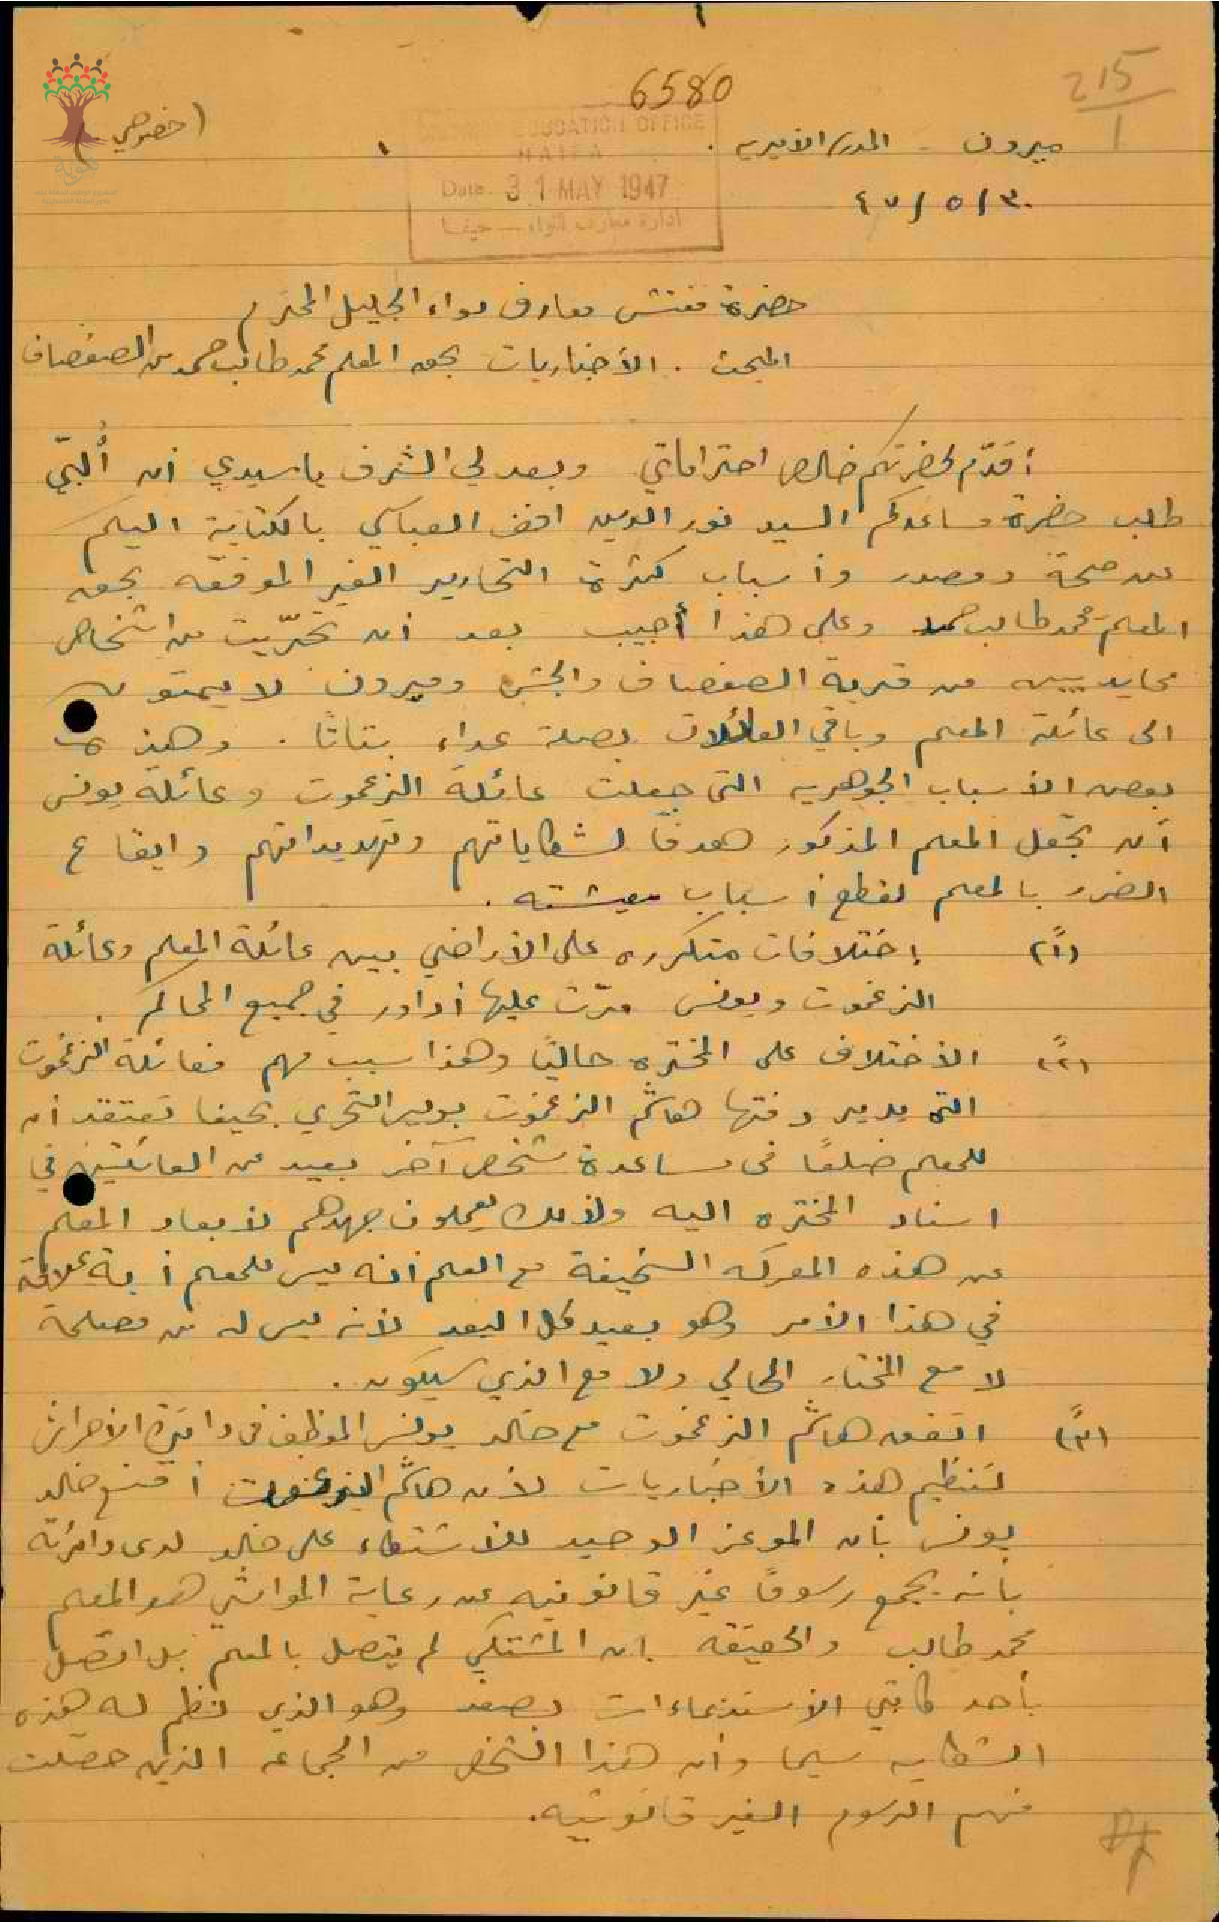 215
1
6580
(خصوصي)
ميرون - المدرسة الأميرية
DISTRICT EDUCATION OFFICE
HAIFA
Date 31 MAY 1947
ادارة معارف اللواء — حيفا
٣٠/٥/٤٧
حضرة مفتش معارف لواء الجليل المحترم
المبحث . الأخباريات بحق المعلم محمد طالب حمد من الصفصاف
أقدّم لحضرتكم خالص احتراماتي وبعد لي الشرف يا سيدي ان أُلبّي
طلب حضرة مساعدكم السيد نور الدين افندي العباسي بالكتابة اليكم
عن صحة ومصدر وأسباب كثرة التحارير الغير الموقعه بحق
المعلم محمد طالب حمد وعلى هذا أجيب بعد أن تحرّيت من اشخاص
محايديين من قرية الصفصاف والجش وميرون لا يمتون
الى عائلة المعلم وباقي العائلات بصلة عداء بتاتًا . وهذه
بعض الأسباب الجوهريه التي جعلت عائلة الزغموت وعائلة يونس
أن تجعل المعلم المذكور هدفًا لشكاياتهم وتهديداتهم وايقاع
الضرر بالمعلم لقطع أسباب معيشته .
(١ً) إختلافات متكرره على الأراضي بين عائلة المعلم وعائلة
الزغموت ويونس مرّت عليها أدوار في جميع المحاكم .
(٢ً) الأختلاف على المختره حاليًا وهذا سبب مهم فعائلة الزغموت
التي يدير دفتها هاشم الزغموت بوليس التحري بحيفا تعتقد أن
للمعلم ضلعًا في مساعدة شخص آخر بعيد من العائلتين في
اسناد المختره اليه ولذلك يعملون جهدهم لأبعاد المعلم
عن هذه المعركه السخيفة مع العلم أنه ليس للمعلم أية علاقة
في هذا الأمر وهو بعيد كل البعد لأنه ليس له من مصلحة
لا مع المختار الحالي ولا مع الذي سيكون .
(٣ً) اتفق هاشم الزغموت مع خالد يونس الموظف في دائرة الأحراش
لتنظيم هذه الأخباريات لأن هاشم الزغموت أقنع خالد
يونس بأن الموعز الوحيد للأشتكاء على خالد لدى دائرته
بأنه يجمع رسومًا غير قانونيه عن رعاية المواشي هو المعلم
محمد طالب والحقيقه ان المشتكي لم يتصل بالمعلم بل اتصل
بأحد كاتبي الأستدعاءات بصفد وهو الذي نظم له هذه
الشكايه سيما وأن هذا الشخص من الجماعه الذين حصلت
منهم الرسوم الغير قانونيه .